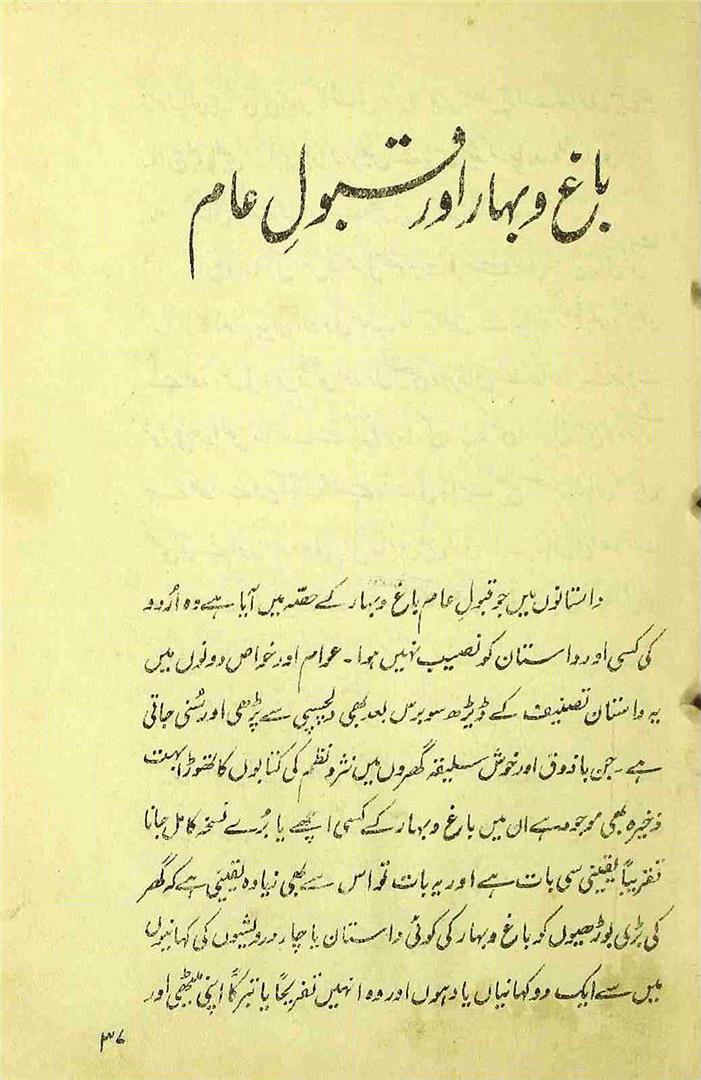 باغ و بہار اور قبولِ عام
داستانوں میں جو قبولِ عام باغ و بہار کے حصّہ میں آیا ہے وہ اُردو
کی کسی اور داستان کو نصیب نہیں ہوا۔ عوام اور خواص دونوں میں
یہ داستان تصنیف کے ڈیڑھ سو برس بعد بھی دلچسپی سے پڑھی اور سُنی جاتی
ہے۔ جن باذوق اور خوش سلیقہ گھروں میں نثر و نظم کی کتابوں کا تھوڑا بہت
ذخیرہ بھی موجود ہے ان میں باغ و بہار کے کسی اچھے یا بُرے نسخہ کا مل جانا
تقریباً یقینی سی بات ہے اور یہ بات تو اس سے بھی زیادہ یقینی ہے کہ گھر
کی بڑی بوڑھیوں کو باغ و بہار کی کوئی داستان یا چار درویشوں کی کہانیوں
میں سے ایک دو کہانیاں یاد ہوں اور وہ انہیں تفریحاً یا تبرکاً اپنی میٹھی اور
۳۷